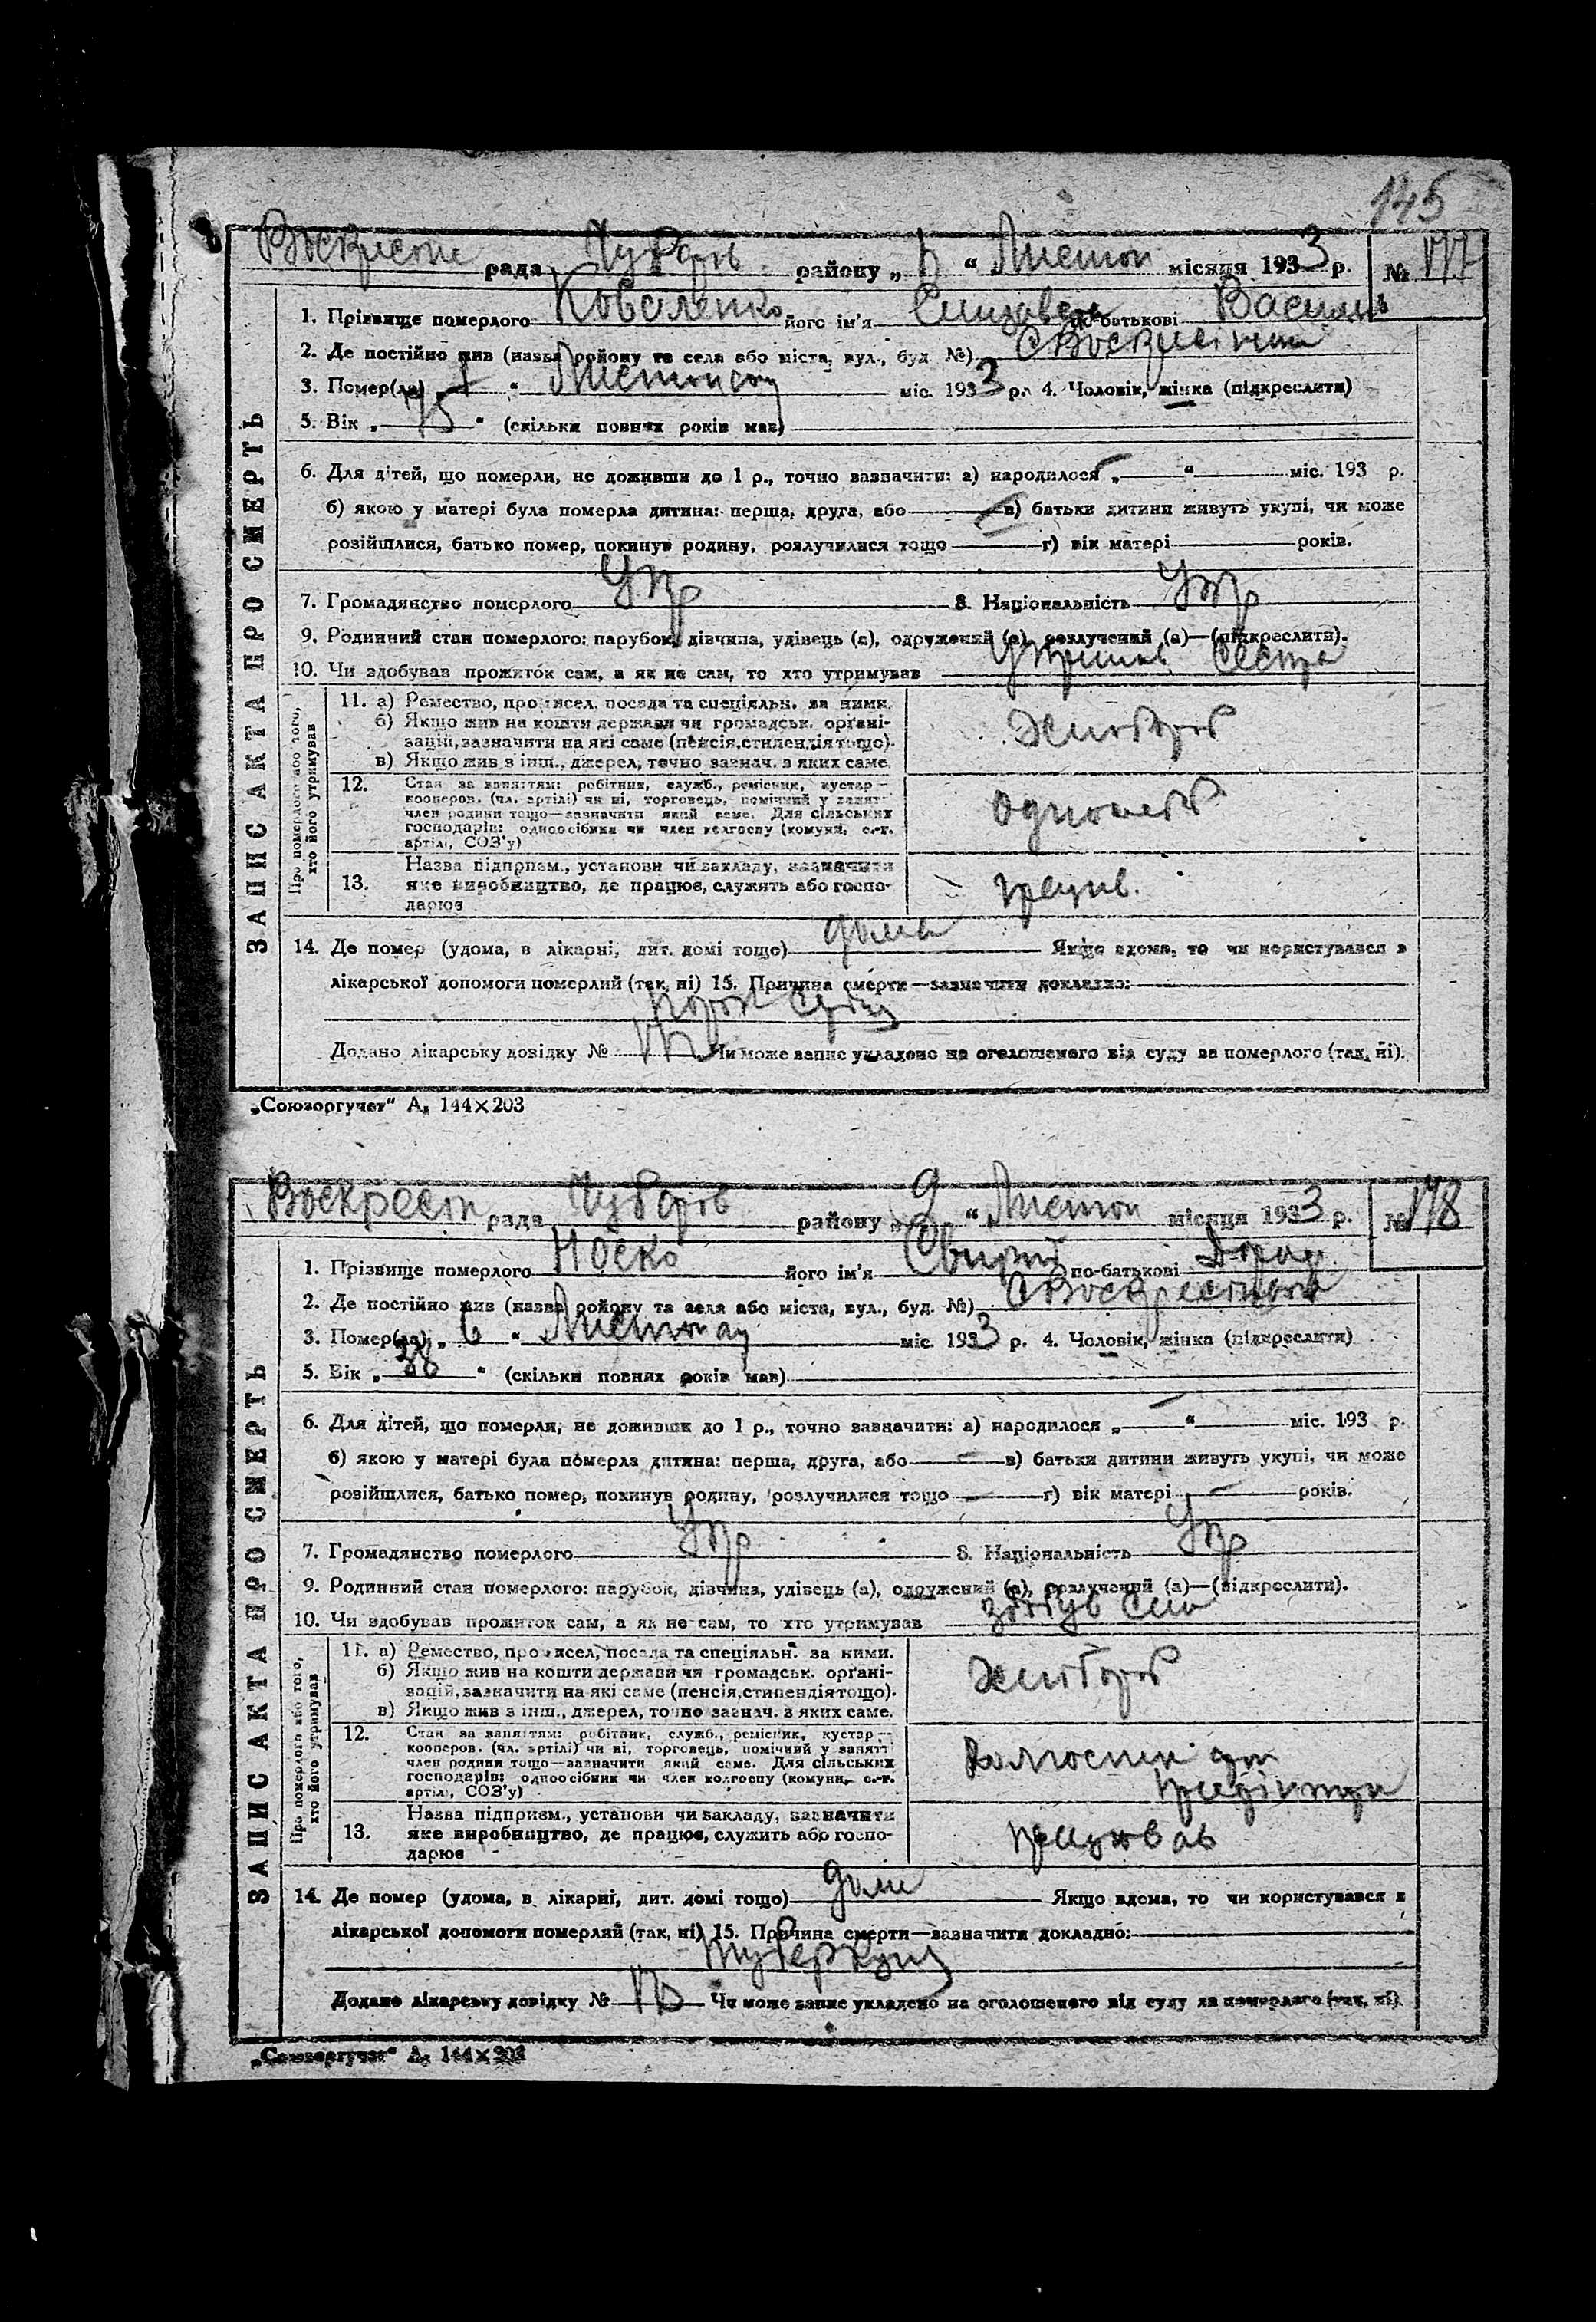 145
Воскресен рада Чубарів району „ “ Листоп місяця 1933 р. № 177
1. Прізвище померлого Коваленко його ім'я Єлизавета по-батькові Василь
2. Де постійно жив (назва району та села або міста, вул., буд. №)
3. Помер(ла) „ “ Листопаду міс. 1933 р. 4. Чоловік, жінка (підкреслити)
5. Вік „ 75 “ (скільки повних років мав)
6. Для дітей, що померли, не доживши до 1 р., точно зазначити: а) народилося „ “ міс. 193 р.
б) якою у матері була померла дитина: перша, друга, або в) батьки дитини живуть укупі, чи може
розійшлися, батько помер, покинув родину, розлучилися тощо г) вік матері років.
7. Громадянство померлого Укр 8. Національність Укр
9. Родинний стан померлого: парубок, дівчина, удівець (а), одружений (а), розлучений (а)—(підкреслити).
10. Чи здобував прожиток сам, а як не сам, то хто утримував
ЗАПИС АКТА ПРО СМЕРТЬ
Про померлого або того, хто його утримував
11. а) Ремество, промисел, посада та спеціяльн. за ними.
б) Якщо жив на кошти держави чи громадськ. органі-
зацій, зазначити на які саме (пенсія, стипендія тощо).
в) Якщо жив з інш., джерел, точно зазнач. з яких саме.
хлібороб
12. Стан за заняттям: робітник, служб., ремісник, кустар—
кооперов. (чл. артілі) чи ні, торговець, помічний у занятт
член родини тощо—зазначити який саме. Для сільських
господарів: одноосібник чи член колгоспу (комуни, с.-г.
артілі, СОЗ'у)
13. Назва підприєм., установи чи закладу, зазначити
яке виробництво, де працює, служить або госпо-
дарює
14. Де помер (удома, в лікарні, дит. домі тощо) дома Якщо вдома, то чи користувався з
лікарської допомоги померлий (так, ні) 15. Причина смерти—зазначити докладно:
порок серця
Додано лікарську довідку № Чи може запис укладено на оголошеного від суду за померлого (так, ні).
„Союзоргучет“ А₅ 144×203
Воскресен рада Чубарів району „ 9 “ Листоп місяця 1933 р. № 178
1. Прізвище померлого Носко його ім'я по-батькові
2. Де постійно жив (назва району та села або міста, вул., буд. №)
3. Помер(ла) „ 6 “ Листопаду міс. 1933 р. 4. Чоловік, жінка (підкреслити)
5. Вік „ 38 “ (скільки повних років мав)
6. Для дітей, що померли, не доживши до 1 р., точно зазначити: а) народилося „ “ міс. 193 р.
б) якою у матері була померла дитина: перша, друга, або в) батьки дитини живуть укупі, чи може
розійшлися, батько помер, покинув родину, розлучилися тощо г) вік матері років.
7. Громадянство померлого Укр 8. Національність Укр
9. Родинний стан померлого: парубок, дівчина, удівець (а), одружений (а), розлучений (а)—(підкреслити).
10. Чи здобував прожиток сам, а як не сам, то хто утримував здобув сам
ЗАПИС АКТА ПРО СМЕРТЬ
Про померлого або того, хто його утримував
11. а) Ремество, промисел, посада та спеціяльн. за ними.
б) Якщо жив на кошти держави чи громадськ. органі-
зацій, зазначити на які саме (пенсія, стипендія тощо).
в) Якщо жив з інш., джерел, точно зазнач. з яких саме.
хлібороб
12. Стан за заняттям: робітник, служб., ремісник, кустар—
кооперов. (чл. артілі) чи ні, торговець, помічний у занятт
член родини тощо—зазначити який саме. Для сільських
господарів: одноосібник чи член колгоспу (комуни, с.-г.
артілі, СОЗ'у)
13. Назва підприєм., установи чи закладу, зазначити
яке виробництво, де працює, служить або госпо-
дарює
працював
14. Де помер (удома, в лікарні, дит. домі тощо) дома Якщо вдома, то чи користувався з
лікарської допомоги померлий (так, ні) 15. Причина смерти—зазначити докладно:
туберкульз
Додано лікарську довідку № Чи може запис укладено на оголошеного від суду за померлого (так, ні).
„Союзоргучет“ А₅ 144×203